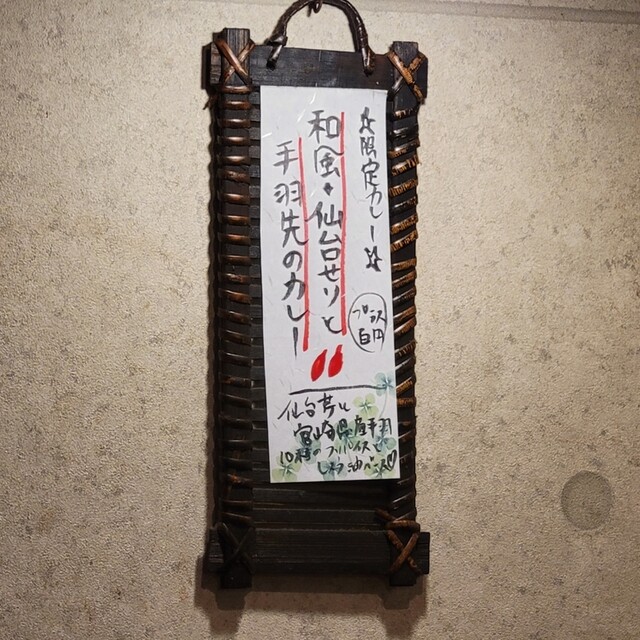 ☆限定カレー☆
和風・仙台せりと
手羽先のカレー
プラス
百円
仙台芹と
宮崎県産手羽
10種のスパイスと
しょう油ベース♡